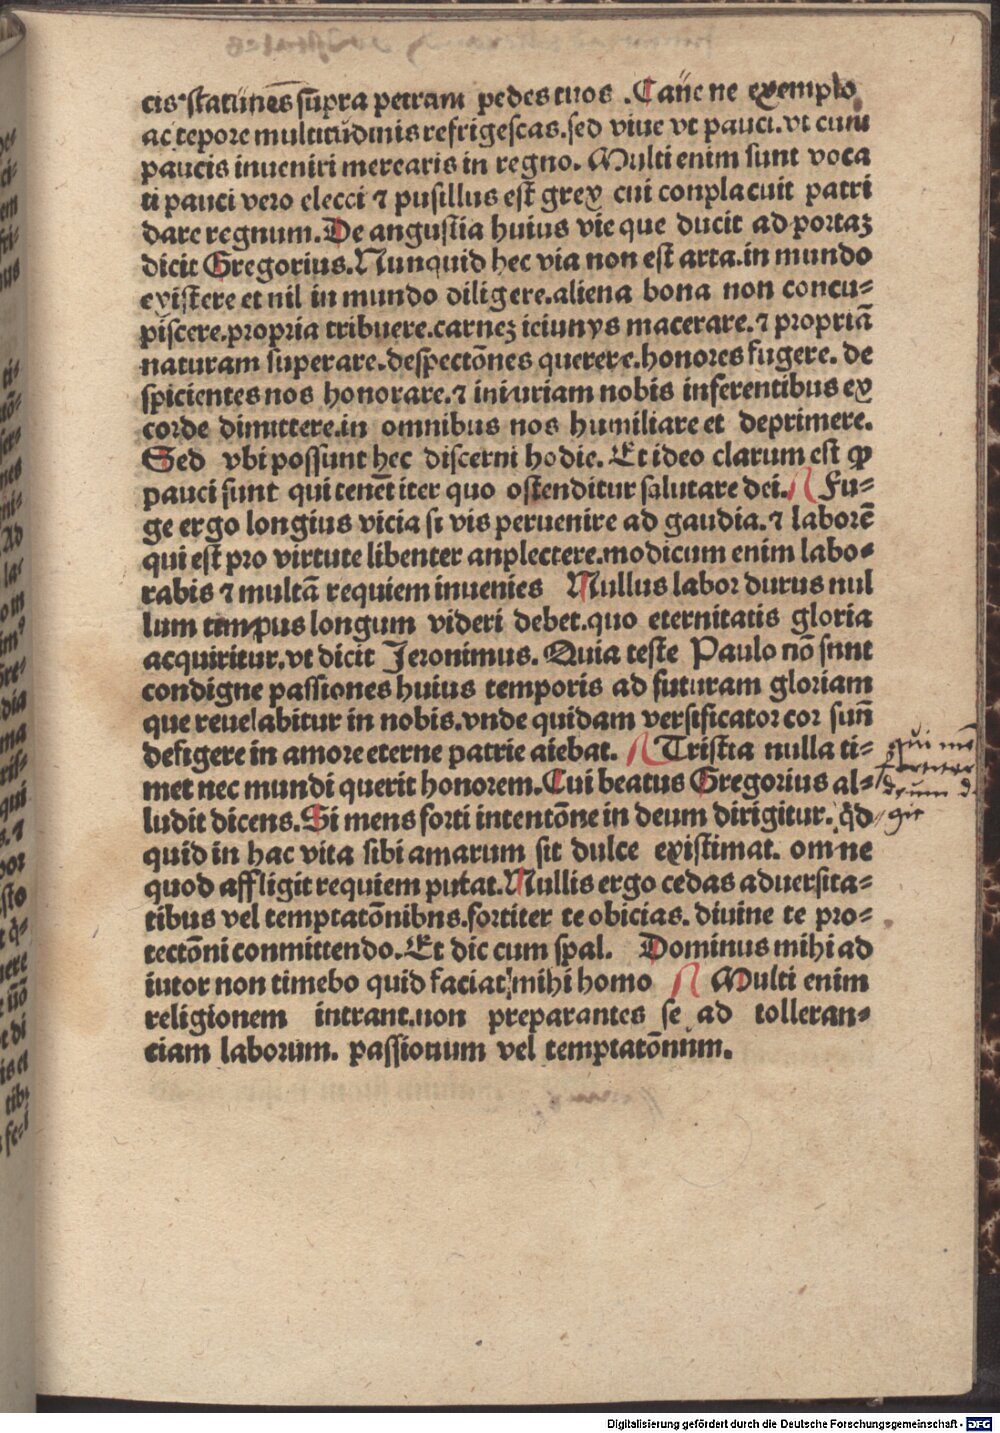 cis statunes sup̄ra petram pedes tuos .Caue ne exemplo
ac tepore multitudinis refrigescas.sed viue vt pauci.vt cum
paucis inueniri merearis in regno. Multi enim sunt voca
ti pauci vero elecci ⁊ pusillus est grex cui conplacuit patri
dare regnum.De angustia huius vie que ducit ad portaꝫ
dicit Gregorius.Nunquid hec via non est arta.in mundo
existere et nil in mundo diligere.aliena bona non concu⸗
piscere.propria tribuere.carneꝫ ieiunys macerare.⁊ propriā
naturam superare.despectōnes querere.honores fugere. de
spicientes nos honorare.⁊ iniuriam nobis inferentibus ex
corde dimittere.in omnibus nos humiliare et deprimere.
Sed vbi possunt hec discerni hodie. Et ideo clarum est ꝙ
pauci sunt qui tenēt iter quo ostenditur salutare dei. Fu⸗
ge ergo longius vicia si vis peruenire ad gaudia.⁊ laborē
qui est pro virtute libenter anplectere.modicum enim labo⸗
rabis ⁊ multā requiem inuenies Nullus labor durus nul
lum tempus longum videri debet.quo eternitatis gloria
acquiritur.vt dicit Jeronimus. Quia teste Paulo nō sunt
condigne passiones huius temporis ad futuram gloriam
que reuelabitur in nobis.vnde quidam versificator cor suū
defigere in amore eterne patrie aiebat. Tristia nulla ti⸗
met nec mundi querit honorem.Cui beatus Gregorius al⸗
ludit dicens.Si mens forti intentōne in deum dirigitur. qd̄
quid in hac vita sibi amarum sit dulce existimat. omne
quod affligit requiem putat.Nullis ergo cedas aduersita⸗
tibus vel temptatōnibns.fortiter te obicias. diuine te pro⸗
tectōni conmittendo.Et dic cum spal. Dominus mihi ad
iutor non timebo quid faciat mihi homo Multi enim
religionem intrant.non preparantes se ad tolleran⸗
ciam laborum. passionum vel temptatōnum.
fortiter
deum
git
Digitalisierung gefördert durch die Deutsche Forschungsgemeinschaft - DFG